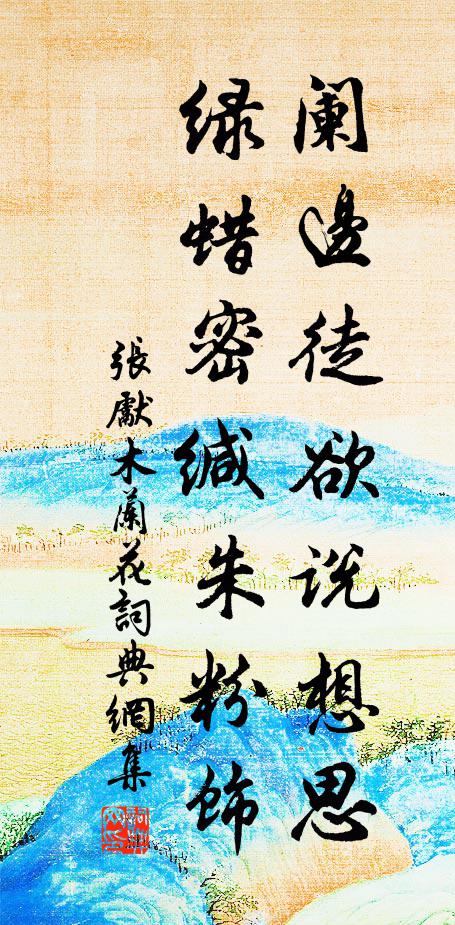 阑邊徒欲说想思
绿蜡密缄朱粉饰
張獻木蘭花詞典網集